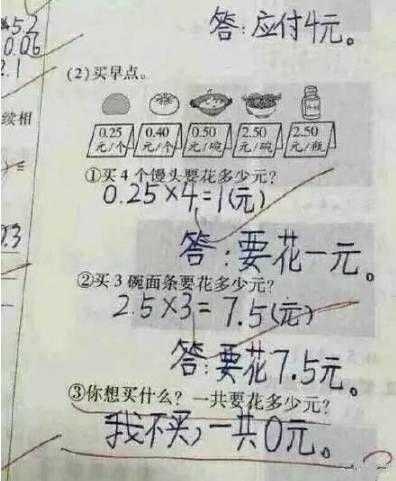 答:应付4元。
×5.2
0.06
2.1
(2)买早点。
续相
0.25 0.40 0.50 2.50 2.50
元/个 元/个 元/碗 元/碗 元/瓶
①买 4 个馒头要花多少元?
0.25×4=1(元)
答:要花一元。
②买 3 碗面条要花多少元?
2.5×3=7.5(元)
答:要花7.5元。
③你想买什么?一共要花多少元?
我不买,一共0元。